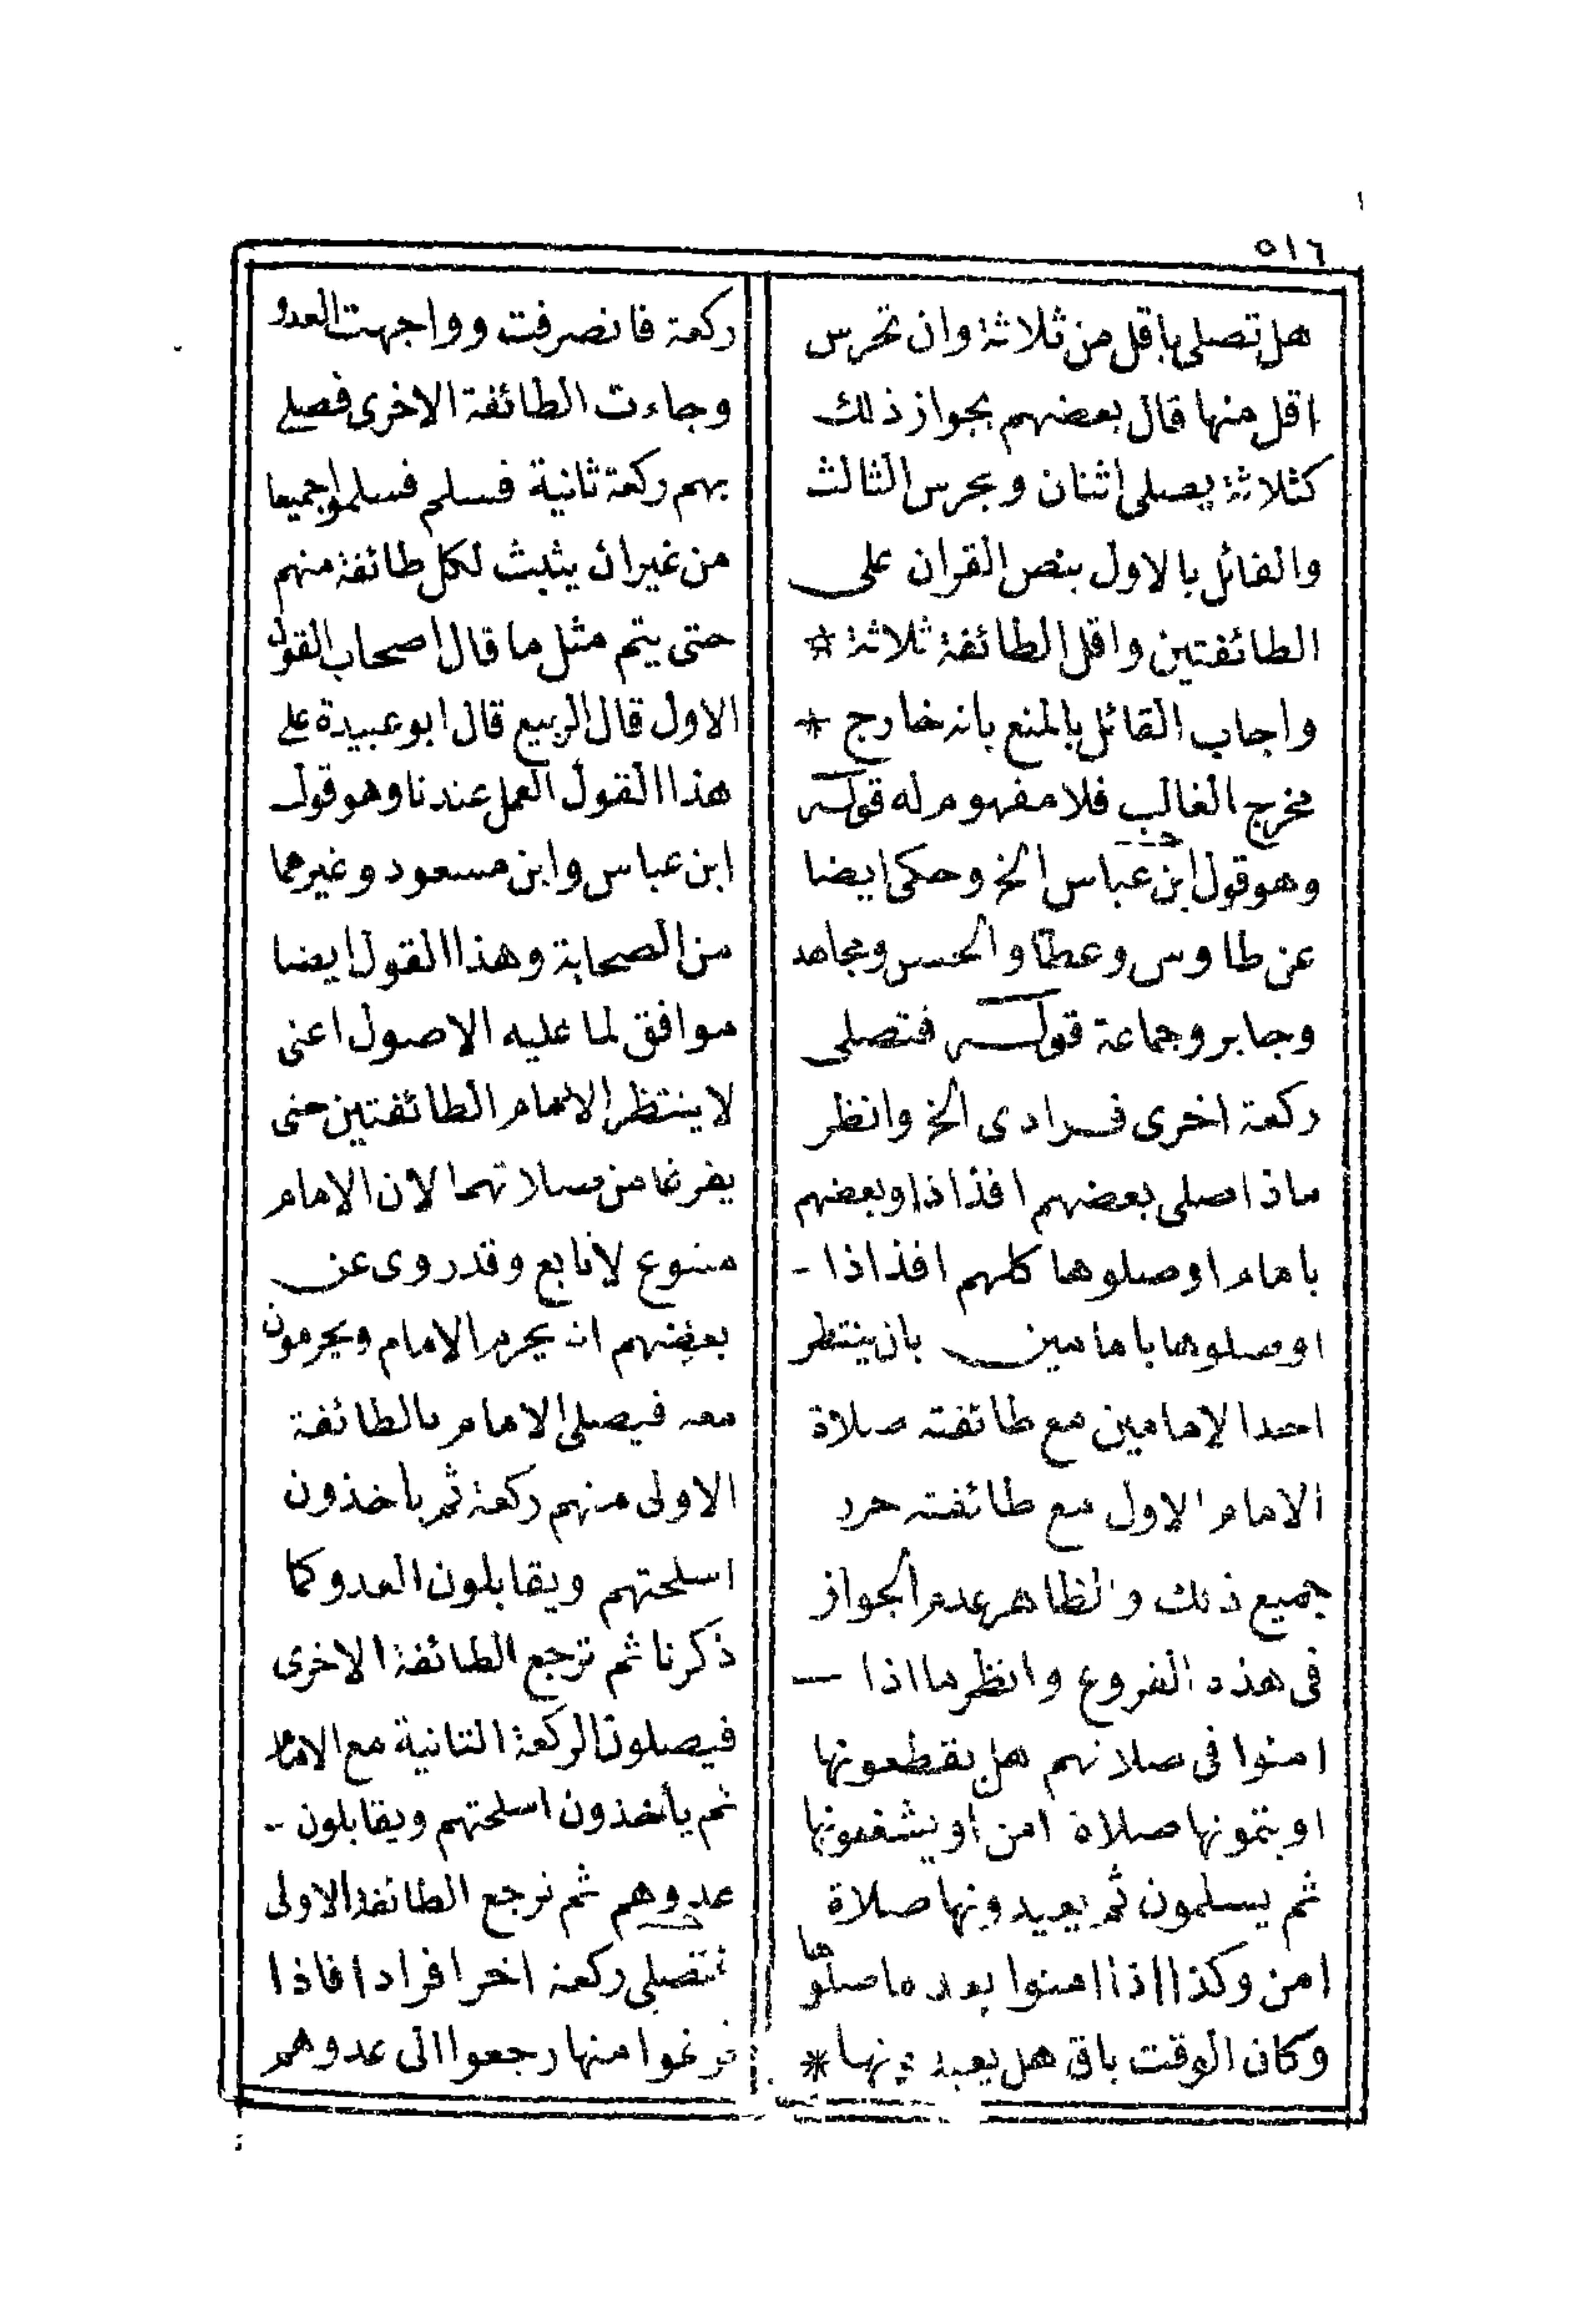 ٥١٦
هل تصلى باقل من ثلاثة وان تحرس
اقل منها قال بعضهم بجواز ذلك
كثلاثة يصلى اثنان ويحرس الثالث
والقائل بالاول بنص القران على
الطائفتين واقل الطائفة ثلاثة *
واجاب القائل بالمنع بانه خارج *
مخرج الغالب فلا مفهوم له قوله
وهو قول ابن عباس الخ وحكى ايضا
عن طاوس وعطا والحسن ومجاهد
وجابر وجماعة قوله فتصلى
ركعة اخرى فرادى الخ وانظر
ماذا صلى بعضهم افذاذا وبعضهم
بامام او صلوها كلهم افذاذا -
او صلوها بامامين بان ينتظر
احد الامامين مع طائفته صلاة
الامام الاول مع طائفته حرر
جميع ذلك والظاهر عدم الجواز
فى هذه الفروع وانظر ما اذا —
امنوا فى صلاتهم هل يقطعونها
او يتمونها صلاة امن او يشفعونها
ثم يسلمون ثم يعيدونها صلاة
امن وكذا اذا امنوا بعد ما صلوها
وكان الوقت باق هل يعيدونها *
ركعة فانصرفت وواجهت العدو
وجاءت الطائفة الاخرى فصلى
بهم ركعة ثانية فسلم فسلموا جميعا
من غير ان يثبث لكل طائفة منهم
حتى يتم مثل ما قال اصحاب القول
الاول قال الربيع قال ابو عبيدة على
هذا القول العمل عندنا وهو قول
ابن عباس وابن مسعود وغيرهما
من الصحابة وهذا القول ايضا
موافق لما عليه الاصول اعنى
لا ينتظر الامام الطائفتين حتى
يفرغا من صلاتهما لان الامام
متبوع لا تابع وقد روى عن
بعضهم ان يحرم الامام ويحرمون
معه فيصلى الامام بالطائفة
الاولى منهم ركعة ثم ياخذون
اسلحتهم ويقابلون العدو كما
ذكرنا ثم ترجع الطائفة الاخرى
فيصلون الركعة الثانية مع الامام
ثم يأخذون اسلحتهم ويقابلون -
عدوهم ثم ترجع الطائفة الاولى
فتصلى ركعة اخرا فرادا فاذا
فرغوا منها رجعوا الى عدوهم